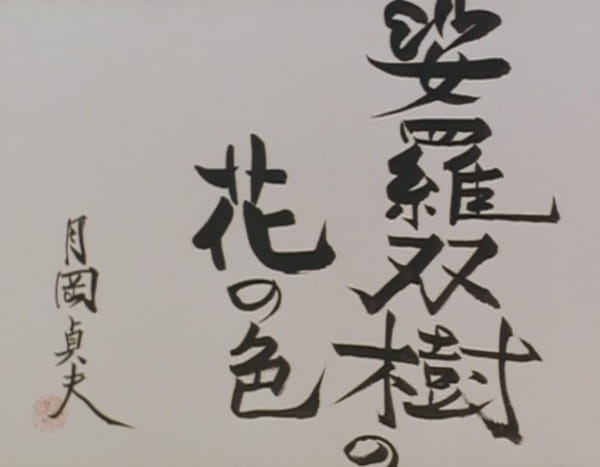 娑羅双樹の
花の色
月岡貞夫